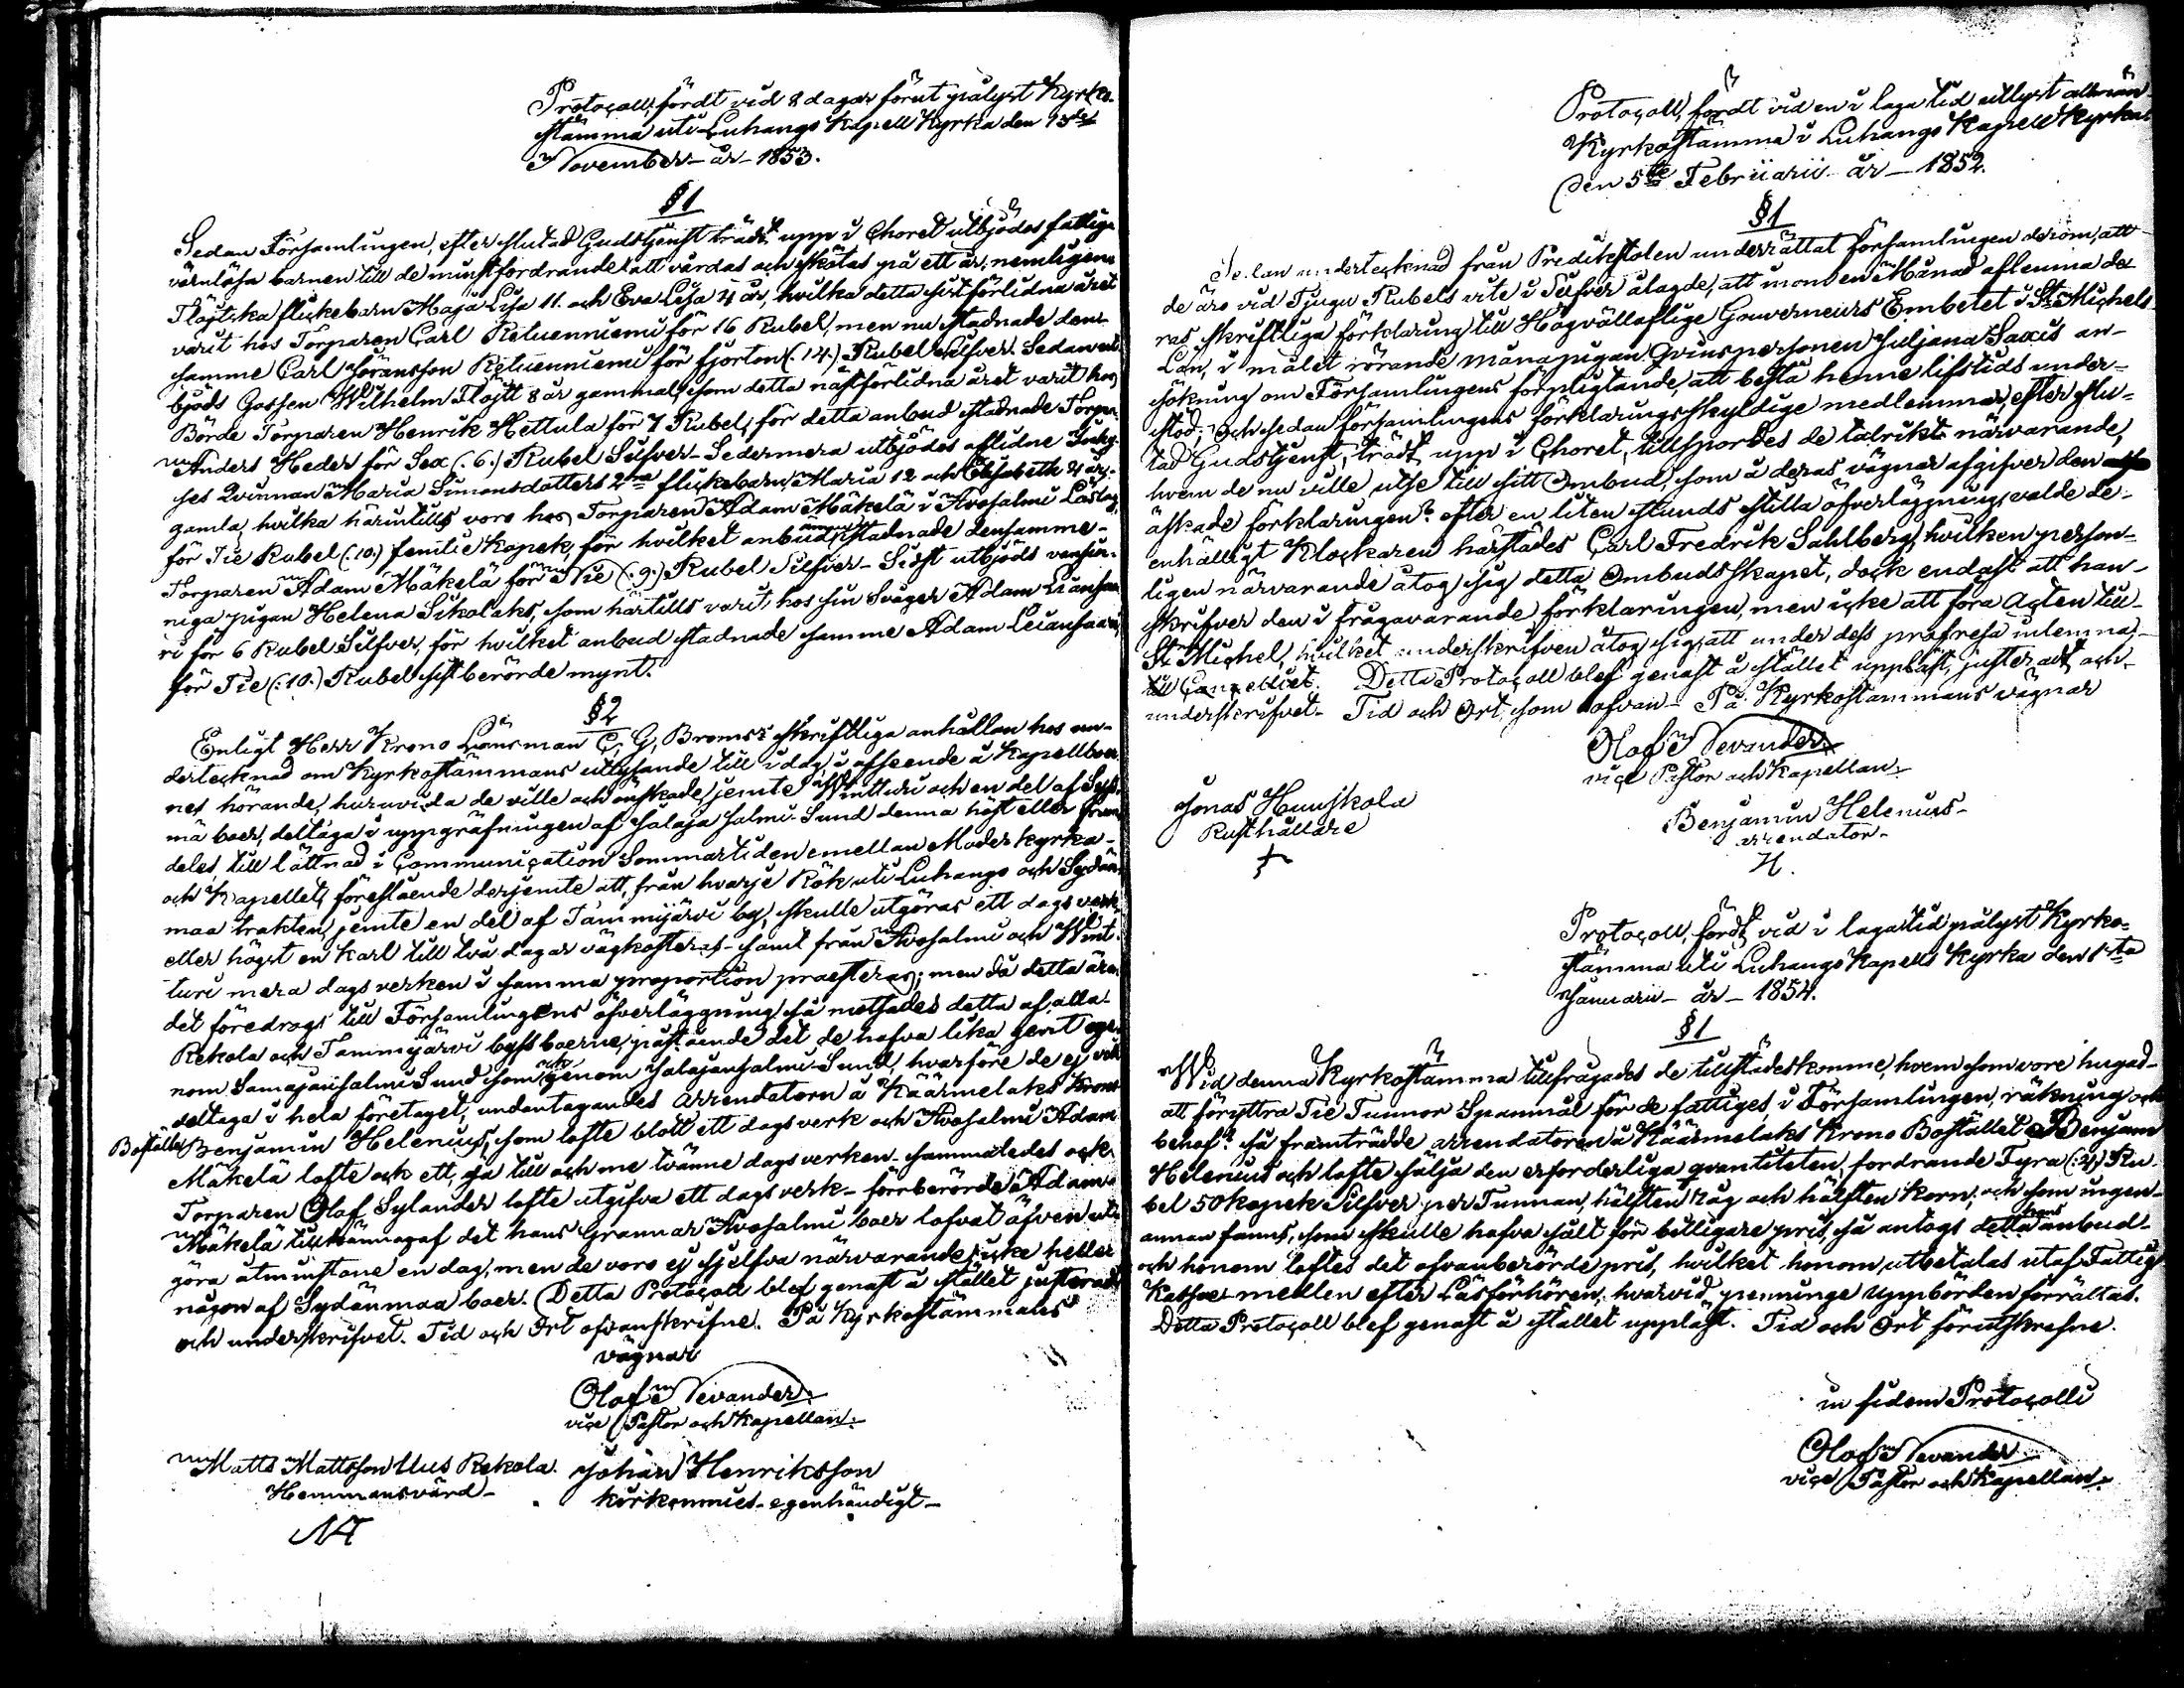 Protocoll, fördt vid 8 dagar förut pålyst Kyrko-
stämma uti Luhango Kapell Kyrka den 13de
November - år - 1853.
§ 1
Sedan Församlingen, efter slutad Gudstjenst trädt upp i Choret utbjödos fattiga
värnlösa barnen till de minst fordrande att vårdas och skötas på ett år, nemligen
Flöjtska flickebarn Maja Lisa 11. och Eva Lisa 4 år, hvilka detta sistförlidna året
varit hos Torparen Carl Reluenniemi för 16 Rubel, men nu stadnade den-
samme Carl Göransson Reluenniemi för fjorton (:14:) Rubel Silfver. Sedan ut-
bjöds Gossen Wilhelm Flöjt 8 år gammal, som detta nästförlidna året varit hos
Börde Torparen Henrik Hettula för 7 Rubel, för detta anbud stadnade Torpa.
Anders Heder för Sex (:6:) Rubel Silfver - Sedermera utbjödos aflidne
Qvinnan Maria Simonsdotters 2ne flickebarn, Maria 12 och Elisabeth 4 år,
gamla, hvilka härintills voro hos Torparen Adam Mäkelä i Avosalmi
för Tie Rubel (:10:) femtie Kopek, för hvilket anbud stadnade densamme -
Torparen Adam Mäkelä för Nie (:9:) Rubel Silfver - Sist utbjöds vansin-
niga pigan Helena Sikolaks, som härtills varit hos sin Svåger Adam Liansaa
ri för 6 Rubel Silfver, för hvilket anbud stadnade samme Adam Leiansaari,
för Tie (:10:) Rubel sistberörde mynt.
§ 2
Enligt Herr Krono Länsman C. G. Broms's skriftliga anhållan hos un-
dertecknad om Kyrkostämmans utlysande till i dag i afseende å Kapellboer-
nes hörande, huruvida de ville och önskade, jemte Wintturi och en del af
mä boer, deltaga i uppgräfningen af Jalaja salmi Sund denna höst eller fram-
deles, till lättnad i Communication Sommartiden emellan Moderkyrka -
och Kapellet, föreslående derjemte att, från hvarje Rök uti Luhango och Sydän
maa trakten, jemte en del af Tammijärvi by, skulle utgöras ett dagsverk
eller högst en karl till två dagar vägkosteras - samt från Avosalmi och Wint-
turi mera dagsverken i samma proportion praesteras; men då detta ären.
det föredrogs till Församlingens öfverläggning så motsades detta af alla
Rekola och Tammijärvi bysboerne, påstående det de hafva lika gent ge-
nom Samajansalmi Sund som genom Jalajansalmi Sund, hvarföre de ej vill
deltaga i hela företaget, undantagandes arrendatorn å Käärmelaks Krono
Boställe Benjamin Helenius, som lofte blott ett dagsverk och Avosalmi Adam
Mäkelä lofte ock ett, ja till och me tvänne dagsverken. sammaledes ock
Torparen Olof Sylander lofte utgifva ett dagsverk - förrberörde Adam
Mäkelä tillkännagaf det hans Grannar Avosalmi boer lofvat äfven ut-
göra åtminstone en dag, men de voro ej sjelfva närvarande, icke heller
någon af Sydänmaa boer. Detta Protocoll blef genast å stället justerad
och underskrifvet. Tid och Ort ofvanskrifne. På Kyrkostämmans
vägnar
Olof Nevander.
vice Pastor och Kapellan.
Matts Mattsson Uus Rekola.
Hemmansvärd -
Johan Henriksson
egenhändigt -
Protocoll, fördt vid en i laga tid utlyst allmän
Kyrkostämma i Luhango Kapell Kyrka
den 5te Februarii - år - 1852.
§ 1
Sedan undertecknad från Predikstolen underrättat församlingen derom, att
de äro vid Tjugu Rubels vite i Silfver ålagde, att inom en Månad aflemna de-
ras skriftliga förklaring till Högvällofliga Guverneurs Embetet i St. Michels
Län, i målet rörande månapigan Qvinspersonen Juljana Saxis an-
sökning om Församlingens förpligtande, att bestå henne lifstids under-
stöd; Och sedan församlingens förklaringsskyldige medlemmar, efter slu-
tad Gudstjenst, trädt upp i Choret, tillspordes de talrikt närvarande,
hvem de nu ville utse till sitt Ombud, som å deras vägnar afgifver den
äskade förklaringen? efter en liten stunds stilla öfverläggning, valde de
enhälligt Klockaren härstädes Carl Fredrik Sahlberg, hvilken person-
ligen närvarande åtog sig detta Ombudsskapet, dock endast att han -
skrifver den i frågavarande förklaringen, men icke att föra acten till
St Michel, hvilket underskrifven åtog sig, att under dess profresa inlemna,
till Cancelliet. Detta Protocoll blef genast å stället uppläst, justeradt och
underskrifvet - Tid och Ort, som ofvan - På Kyrkostämmans vägnar
Olof Nevander
vice Pastor och Kapellan.
Jonas Huuskola
Rusthållare
Benjamin Helenius -
arrendator -
H.
Protocoll, fördt vid i laga tid pålyst Kyrko-
stämma uti Luhango Kapells Kyrka den 1sta
Januarii - år - 1854.
§ 1
Wid denna Kyrkostämma tillfrågades de tillstädeskomne, hvem som vore hugad -
att föryttra Tie Tunnor Spanmål för de fattiges, i Församlingen, räkning och
behof? så framträdde arrendatoren å Käärmelaks Krono Bostället Benjam
Helenius och lofte sälja den erforderliga qvantiteten, fordrande Fyra (:4:) Ru-
bel 50 kopek Silfver per Tunnan, hälften råg och hälften Korn; och som ingen -
annan fanns, som skulle hafva sålt för billigare pris, så antogs detta hans anbud -
och honom loftes det ofvanberörde pris, hvilket honom utbetalas utaf Fattig
Kassae medlen efter Läsförhören, hvarvid penninge uppbörden förrättas.
Detta Protocoll blef genast å stället uppläst. Tid och Ort förutskrefne.
in fidem Protocolli
Olof Nevander
vice Pastor och Kapellan.